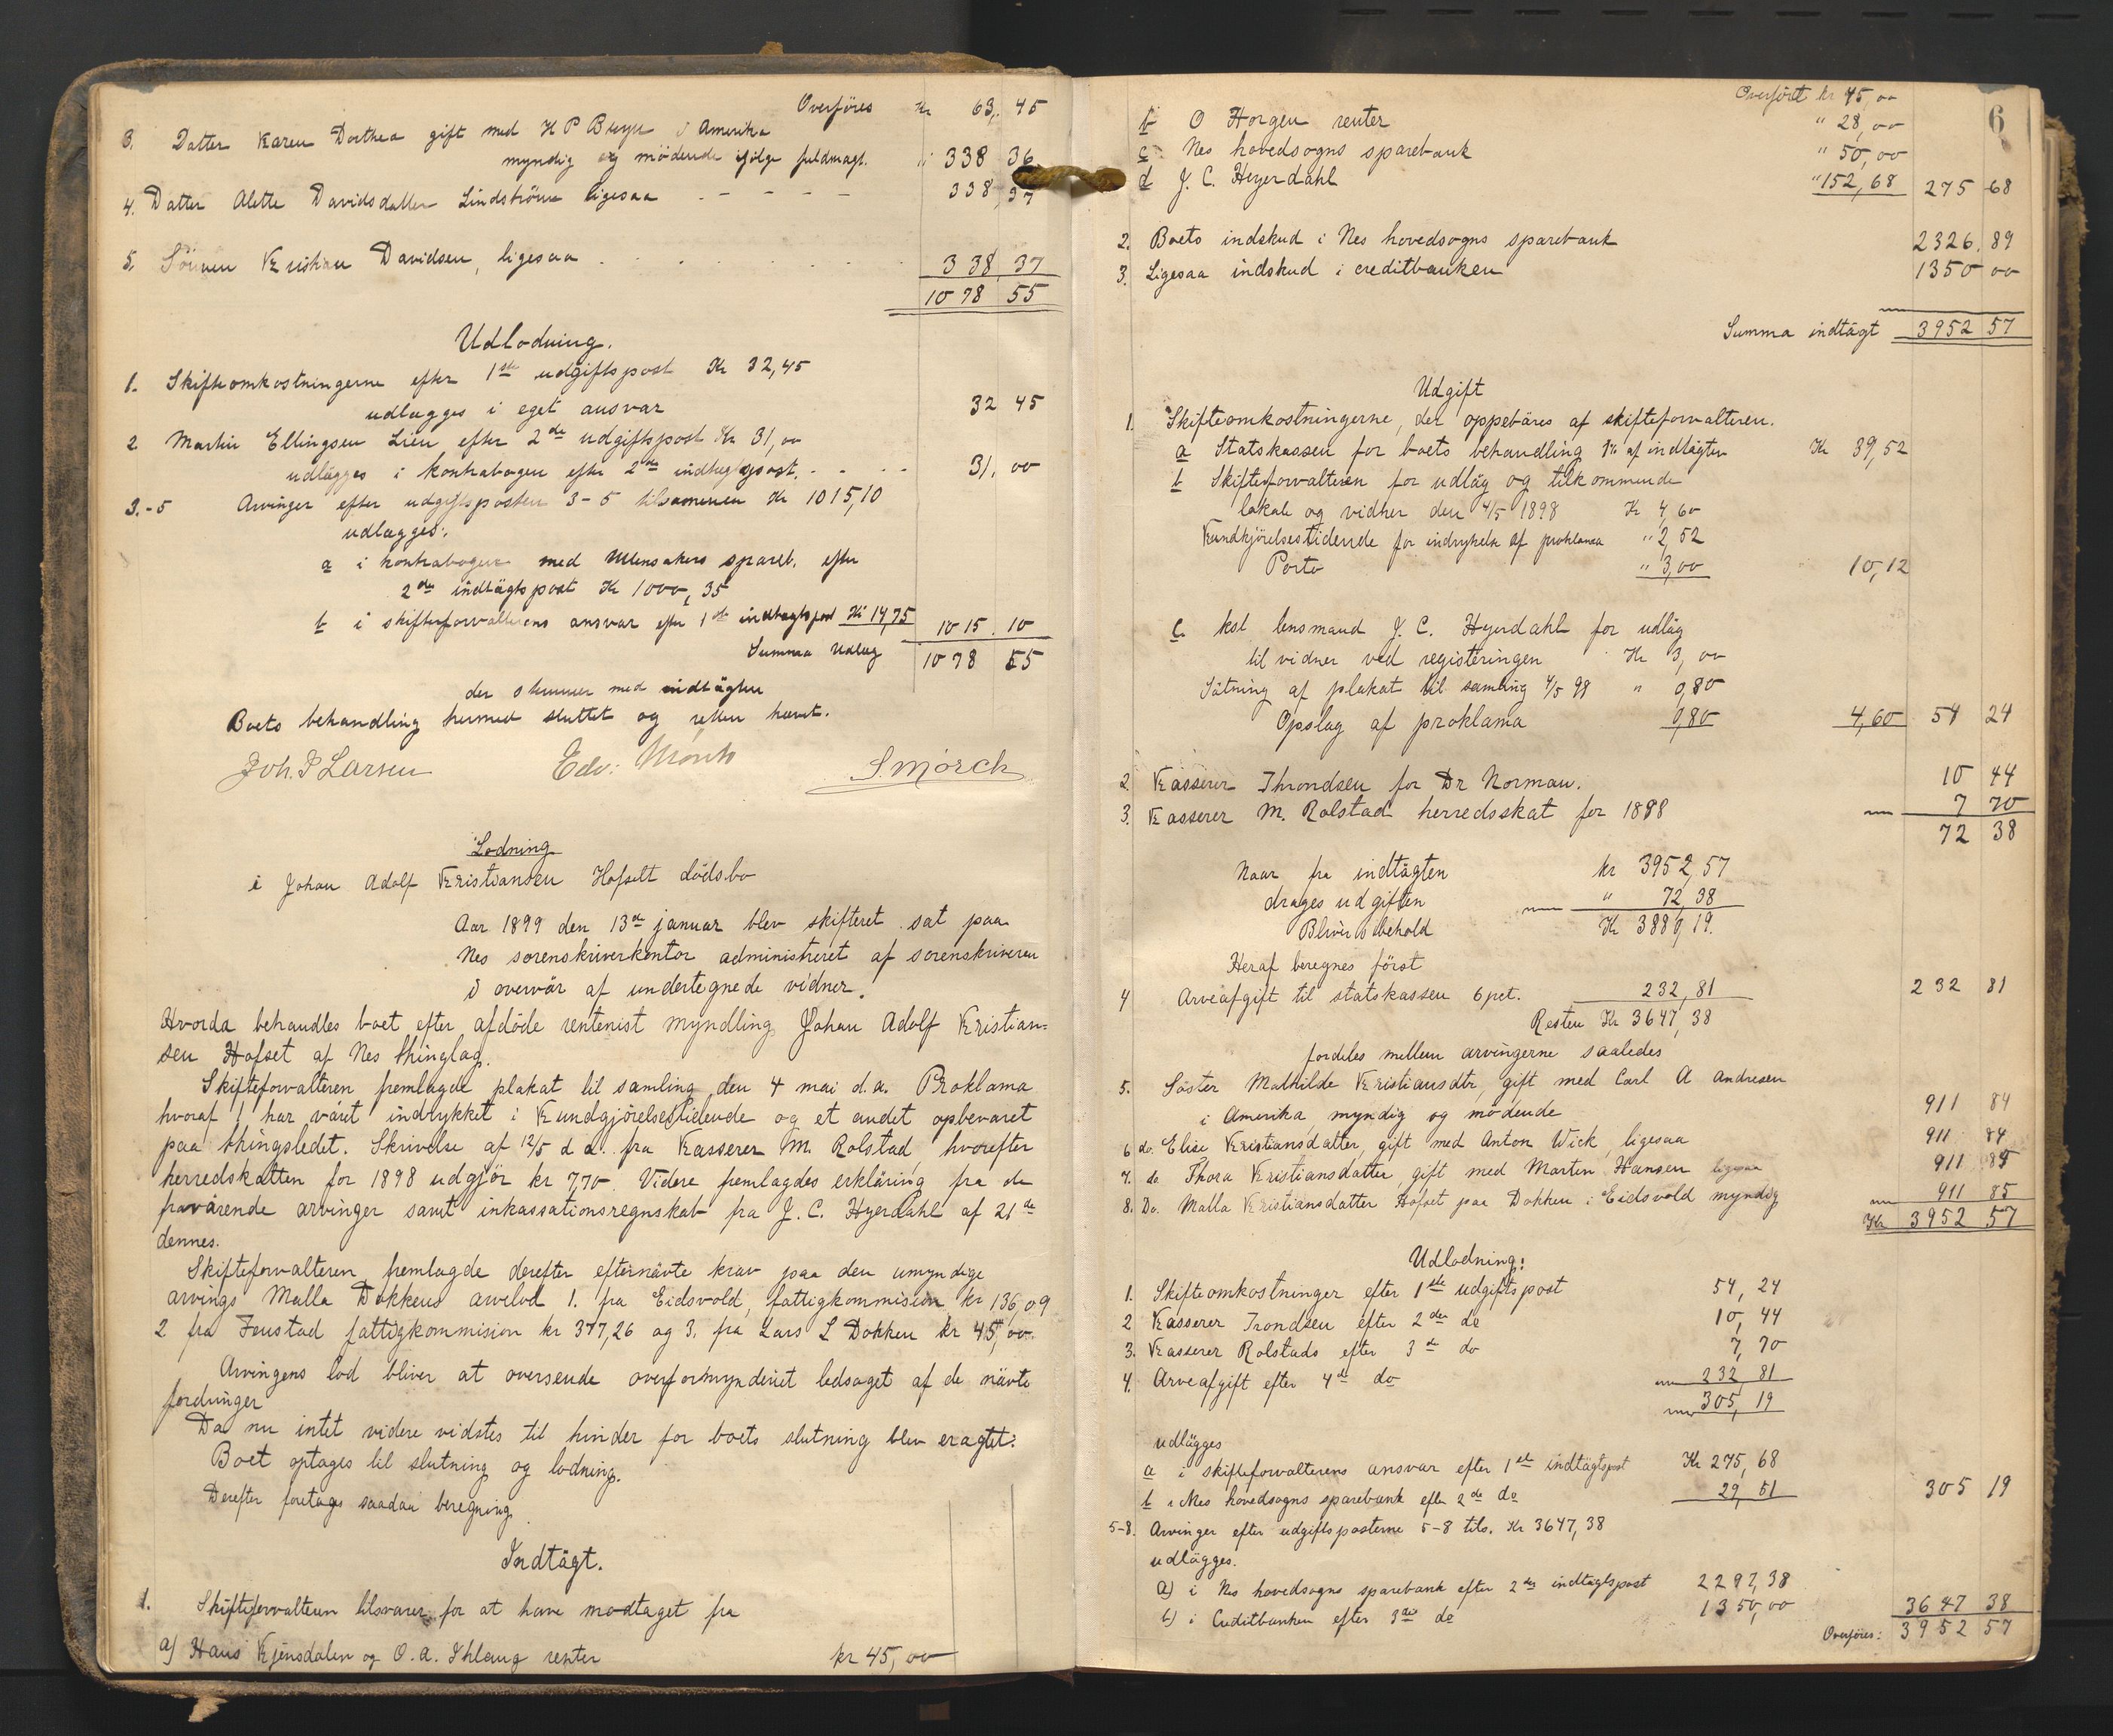 Overføres Kr 63, 45
3. Datter Karen Dorthea gift med H P Bruyn i Amerika
myndig og mödende ifölge fuldmagt. " 338 36
4. Datter Alette Davidsdatter Lindström ligesaa - - - - 338, 37
5. Sönnen Kristian Davidsen, ligesaa . . . . . . . . 338 37
1078 55
Udlodning.
1. Skifteomkostningerne efter 1ste udgiftspost Kr 32,45
udlægges i eget ansvar 32 45
2 Martin Ellingsen Lien efter 2de udgiftspost Kr 31,00
udlägges i kontrabogen efter 2den indtægtspost. . - - - 31, 00
3.-5 Arvinger efter udgiftsposten 3-5 tilsammen Kr 1015,10
udlægges:
a i kontrabogen med Ullensakers spareb. efter
2den indtägtspost Kr 1000,35
b i skifteforvalterens ansvar efter 1ste indtægtspost Kr 14,75 1015. 10
Summa Udlæg 1078 55
der stemmer med indtägten
Boets behandling hermed sluttet og retten hævet.
Joh. P Larsen Edv: Mönth S Mörch
Lodning
i Johan Adolf Kristiansen Hofsett dödsbo
Aar 1899 den 13de januar blev skifteret sat paa
Nes sorenskriverkontor administreret af sorenskriveren
i overvär af undertegnede vidner.
Hvorda behandles boet efter afdöde rentenist myndling Johan Adolf Kristian-
sen Hofset af Nes thinglag.
Skifteforvalteren fremlagde plakat til samling den 4 mai d.a. Proklama
hvoraf 1 har väret indrykket i Kundgjörelsestidende og et andet opbevaret
paa thingstedet. Skrivelse af 12/5 d a. fra Kasserer M. Rolstad hvorefter
herredskatten for 1898 udgjör kr 7,70. Videre fremlagdes erkläring fra de
fravärende arvinger samt inkassationsregnskab fra J. C. Hyerdahl af 21de
dennes.
Skifteforvalteren fremlagde derefter efternävte krav paa den umyndige
arvings Malla Dokkens arvelod 1. fra Eidsvold, fattigkommision kr 136,09
2 fra Feustad fattigkommision kr 377,26 og 3. fra Lars L Dokken kr 45,00.
Arvingens lod bliver at oversende overformynderiet ledsaget af de nävte
fordringer
Da nu intet videre vidstes til hinder for boets slutning blev eragtet:
Boet optages til slutning og lodning.
Derefter foretages saadan beregning
Indtägt.
1. Skifteforvalteren tilsvarer for at have modtaget fra
a) Hans Kjensdalen og O. A. Ihlang renter kr 45,00
6
Overfört kr 45,00
b O Horgen renter " 28,00
c. Nes hovedsogns sparebank " 50,00
d J. C. Heyerdahl " 152,68 275 68
2. Boets indskud i Nes hovedsogns sparebank 2326. 89
3. Ligesaa indskud i creditbanken 1350 00
Summa indtägt 3952 57
Udgift
1. Skifteomkostningerne, der oppebäres af skifteforvalteren.
a Statskassen for boets behandling 1% af indtägten Kr 39,52
b Skifteforvalteren for udläg og tilkommende
lokale og vidner den 4/5 1898 Kr 4,60
Kundkjörelsestidende for indrykelse af proklama " 2,52
Porto " 3,00 10,12
c. kst lensmand J. C. Hyerdahl for udläg
til vidner ved registeringen Kr 3,00
Sätning af plakat til samling 4/5 98 " 0,80
Opslag af proklama 0,80 4,60 54 24
2. Kasserer Throndsen for Dr Norman. 10 44
3. Kasserer M. Rolstad herredsskat for 1898 7 70
72 38
Naar fra indtägten kr 3952,57
drages udgiften " 72,38
Bliver i behold Kr 3880,19.
Heraf beregnes först
4 Arveafgift til statskassen 6 pct. 232,81 232 81
Resten Kr 3647,38
fordeles mellem arvingerne saaledes
5. Söster Mathilde Kristiansdtr, gift med Carl A Andresen
i Amerika, myndig og mödende 911 84
6 do. Elise Kristiansdatter, gift med Anton Wick, ligesaa 911 84
7. do Thora Kristiansdatter gift med Morten Hansen ligesaa 911 85
8. Do. Malla Kristiansdatter Hofset paa Dokken i Eidsvold myndig 911 85
Kr 3952 57
Udlodning:
1. Skifteomkostninger efter 1ste udgiftspost 54, 24
2 Kasserer Trondsen efter 2den do 10, 44
3. Kasserer Rolstads efter 3de do 7, 70
4. Arveafgift efter 4de do 232 81
305, 19
udlägges
a i skifteforvalterens ansvar efter 1ste indtägtspost Kr 275, 68
b i Nes hovedsogns sparebank efter 2de do 29, 51 305 19
5-8. Arvinger efter udgiftsposterne 5-8 tils. Kr 3647,38
udlägges.
a) i Nes hovedsogns sparebank efter 2den indtægtspost 2297,38
b) i Creditbanken efter 3die do 1350,00 3647 38
Overføres: 3952 57